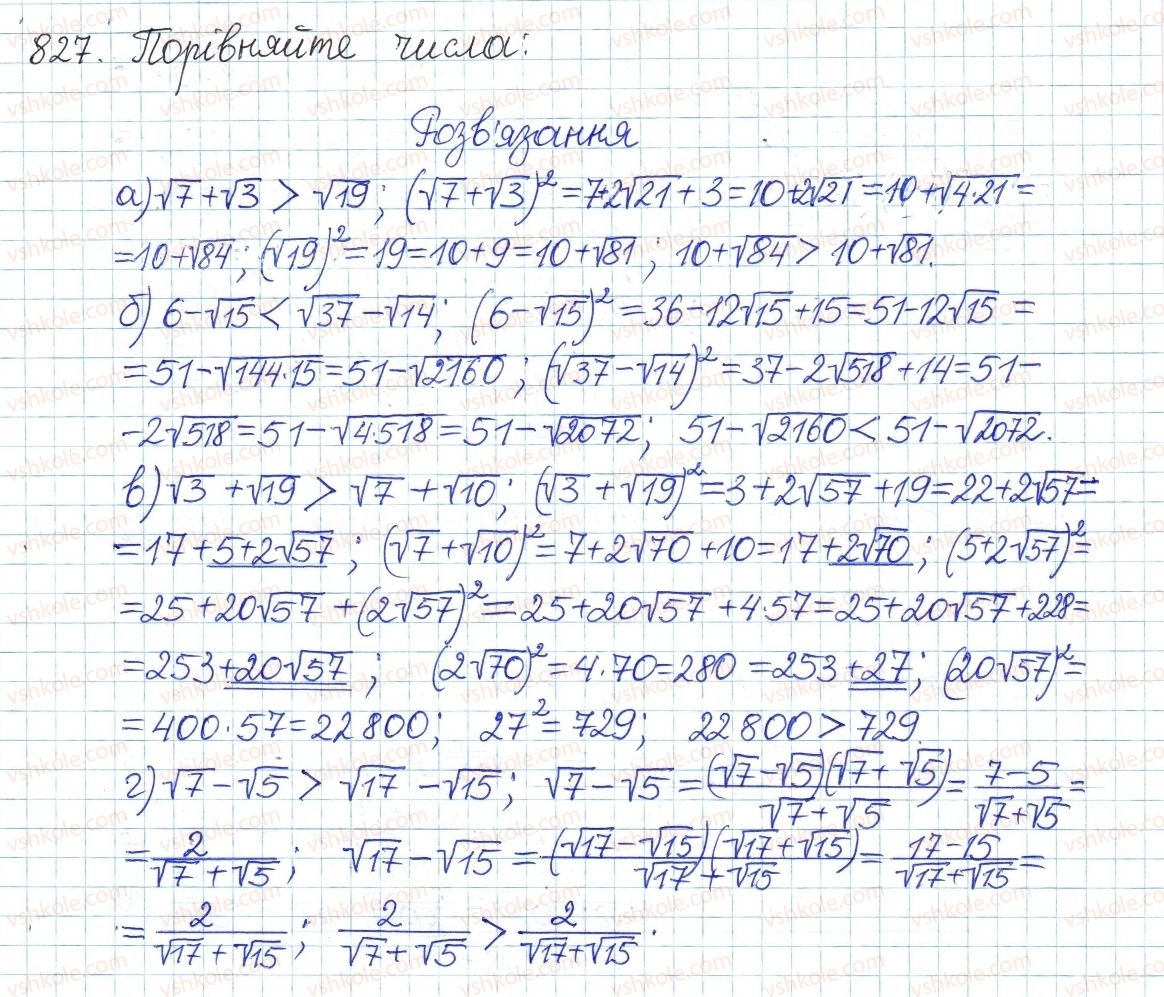 827. Порівняйте числа:
Розв'язання
а) √7+√3 > √19; (√7+√3)²=7+2√21+3=10+2√21=10+√4·21=
=10+√84; (√19)²=19=10+9=10+√81; 10+√84>10+√81.
б) 6-√15<√37-√14; (6-√15)²=36-12√15+15=51-12√15=
=51-√144·15=51-√2160; (√37-√14)²=37-2√518+14=51-
-2√518=51-√4·518=51-√2072; 51-√2160<51-√2072.
в) √3+√19>√7+√10; (√3+√19)²=3+2√57+19=22+2√57=
=17+5+2√57; (√7+√10)²=7+2√70+10=17+2√70; (5+2√57)²=
=25+20√57+(2√57)²=25+20√57+4·57=25+20√57+228=
=253+20√57; (2√70)²=4·70=280=253+27; (20√57)²=
=400·57=22800; 27²=729; 22800>729.
г) √7-√5>√17-√15; √7-√5=(√7-√5)(√7+√5)/(√7+√5)=(7-5)/(√7+√5)=
=2/(√7+√5); √17-√15=(√17-√15)(√17+√15)/(√17+√15)=(17-15)/(√17+√15)=
=2/(√17+√15); 2/(√7+√5)>2/(√17+√15).